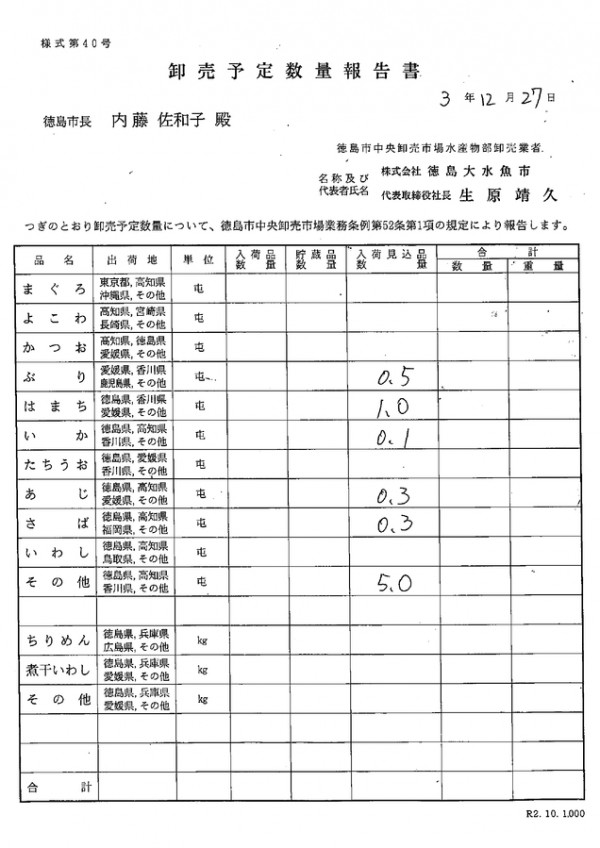 様式第40号
卸売予定数量報告書
3年12月27日
徳島市長 内藤 佐和子 殿
徳島市中央卸売市場水産物部卸売業者
名称及び 株式会社 徳島大水魚市
代表者氏名 代表取締役社長 生原靖久
つぎのとおり卸売予定数量について、徳島市中央卸売市場業務条例第52条第1項の規定により報告します。
品名 出荷地 単位 入荷品数量 貯蔵品数量 入荷見込品数量 合計
数量 重量
まぐろ 東京都, 高知県 屯
沖縄県, その他
よこわ 高知県, 宮崎県 屯
長崎県, その他
かつお 高知県, 徳島県 屯
愛媛県, その他
ぶり 愛媛県, 香川県 屯 0.5
鹿児島県, その他
はまち 徳島県, 香川県 屯 1.0
愛媛県, その他
いか 徳島県, 高知県 屯 0.1
香川県, その他
たちうお 徳島県, 愛媛県 屯
香川県, その他
あじ 徳島県, 高知県 屯 0.3
愛媛県, その他
さば 徳島県, 高知県 屯 0.3
福岡県, その他
いわし 徳島県, 高知県 屯
鳥取県, その他
その他 徳島県, 高知県 屯 5.0
香川県, その他
ちりめん 徳島県, 兵庫県 kg
広島県, その他
煮干いわし 徳島県, 兵庫県 kg
愛媛県, その他
その他 徳島県, 兵庫県 kg
愛媛県, その他
合計
R2.10.1,000